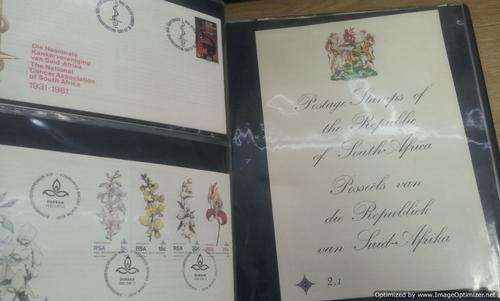 Die Nasionale
Kankervereniging
van Suid-Afrika
The National
Cancer Association
of South Africa
1931-1981
DURBAN
RSA
RSA
RSA
RSA
DURBAN
DURBAN
Postage Stamps of
the Republic
of South Africa
Posseëls van
die Republiek
van Suid-Afrika
2.1
Optimized by www.ImageOptimizer.net